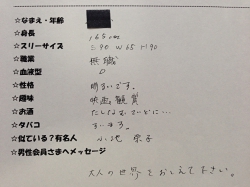 ☆なまえ・年齢
☆身長 165cm
☆スリーサイズ B90 W65 H90
☆職業 無職
☆血液型 O
☆性格 明るいです。
☆趣味 映画観賞
☆お酒 たしなむていどに…
☆タバコ すいます。
☆似ている?有名人 小池 栄子
☆男性会員さまへメッセージ
大人の世界をおしえて下さい。